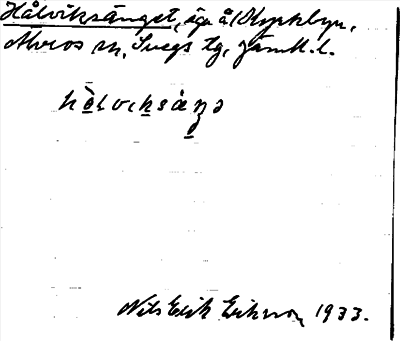 Hålviksänget, äga å Kyrkbyn,
Alvros sn, Svegs tg, Jämtl. l.
hålvıksäŋə
Nils Erik Eriksson 1933.